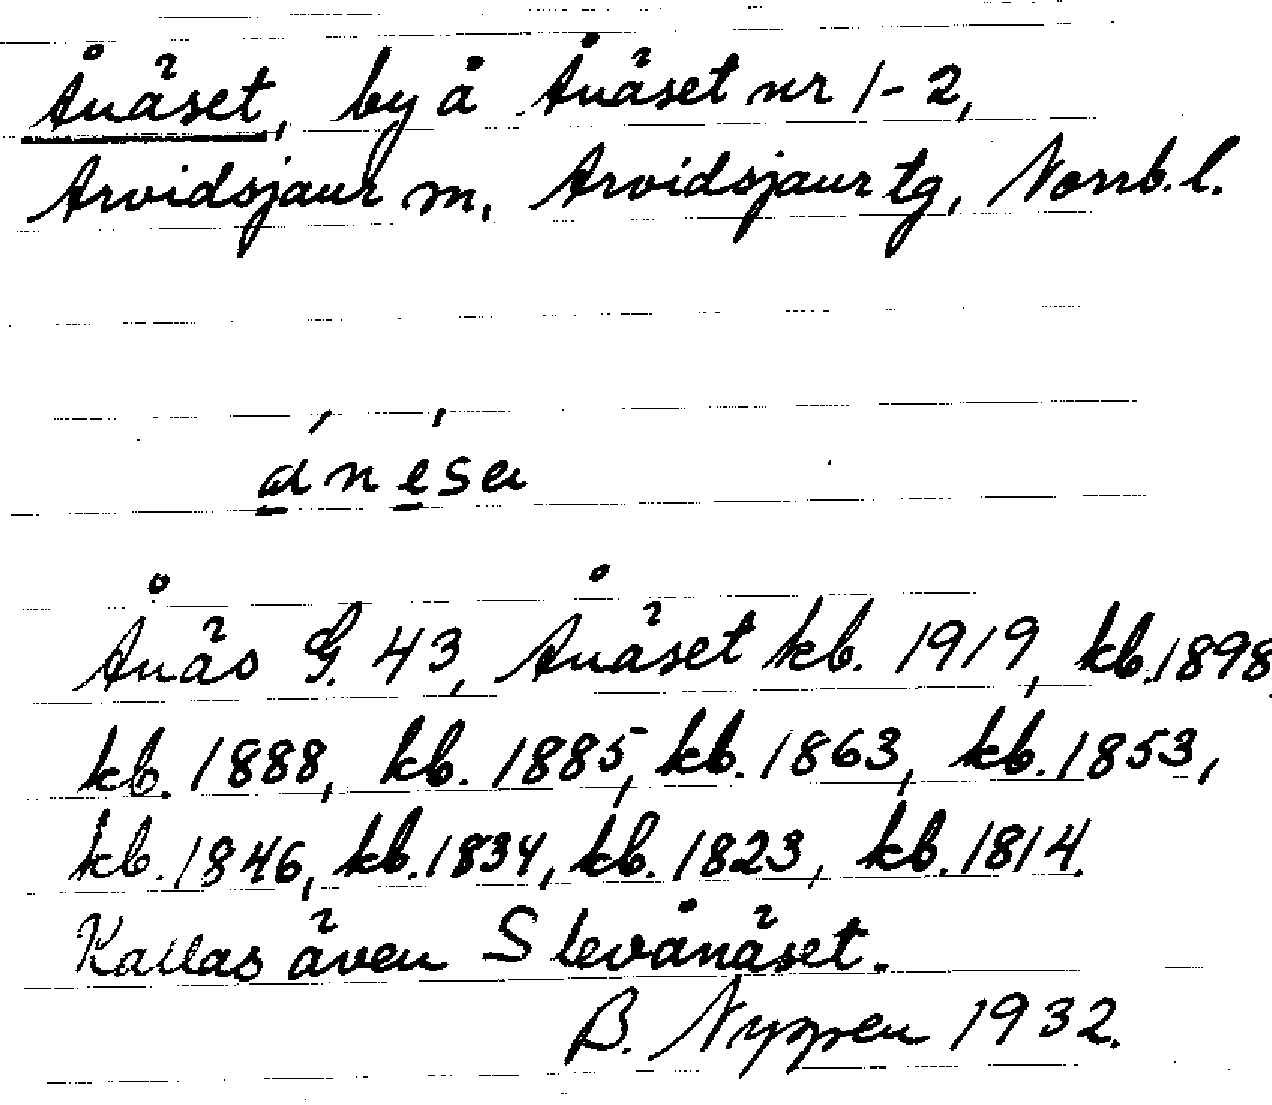 Ånäset, by å Ånäset nr 1-2,
Arvidsjaur m, Arvidsjaur tg, Norrb. l.
ánésa
Ånäs G. 43, Ånäset kb. 1919, kb. 1898,
kb. 1888, kb. 1885, kb. 1863, kb. 1853,
kb. 1846, kb. 1834, kb. 1823, kb. 1814.
Kallas även Slevånäset.
B. Nyppen 1932.